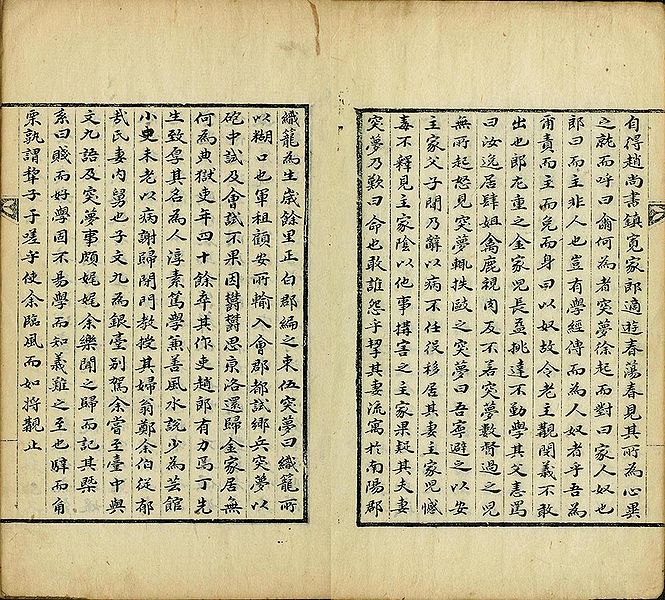 自得趙尚書鎮寛家郎適遊春蕩春見其所為心異
之就而呼曰翕何為者突夢徐起而對曰家人奴也
郎曰而主非人也豈有學經傅而為人奴者乎吾為
甭責而主而免而身曰以奴故令老主觀聞義不敢
出也郎尤重之金家児長益挑達不勤學其父恚罵
曰汝逸居肆姐禽鹿視肉反不若突夢數督過之児
無所起怒見突夢輙抶歐之突夢曰吾寧避之以安
主家父子聞乃辭以病不任役移居其妻主家児憾
毒不釋見主家陰以他事搆害之主家果疑其夫妻
突夢乃歎曰命也敢誰怨乎挈其妻流寓於南陽郡
織籠為生歳餘里正白郡編之束伍突夢曰織籠所
以糊口也軍租顧安所輸入會郡都試鄉兵突夢以
砲中試及會試不果因欝欝思京洛還歸金家居無
何為典獄吏年四十餘卒其作吏趙郎有力焉丁先
生致孚其名為人淳素篤學兼善風水説少為芸館
小吏未老以病謝歸閉門教授其婦翁鄭余伯從郁
哉氏妻内舅也子文九為銀臺別駕余嘗至臺中與
文九語及突夢事頗娓娓余樂聞之歸而記其槩
系曰賤而好學固不易學而知義難之至也騂而角
栗孰謂犂子于嗟乎使余臨風而如將觀止